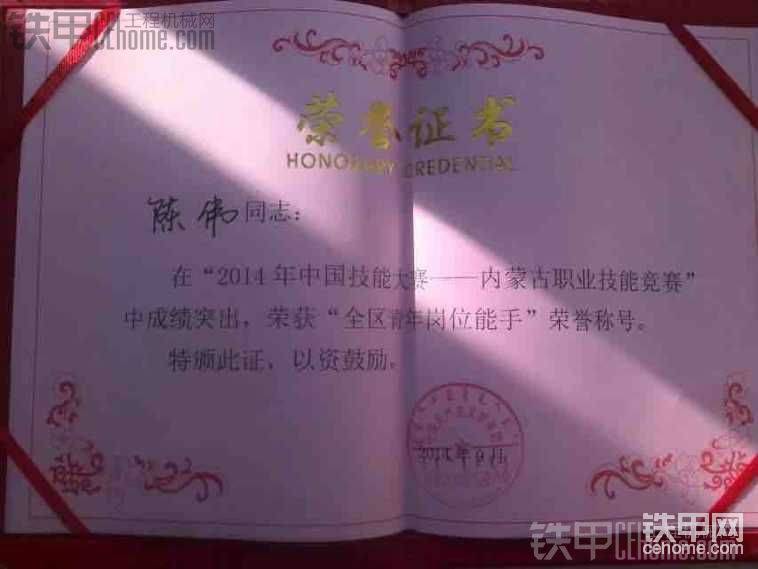 铁甲 工程机械网
CEhome.com
荣誉证书
HONORARY CREDENTIAL
陈伟同志：
在“2014年中国技能大赛——内蒙古职业技能竞赛”
中成绩突出，荣获“全区青年岗位能手”荣誉称号。
特颁此证，以资鼓励。
2014年9月
铁甲CEhome.com
铁甲网
cehome.com